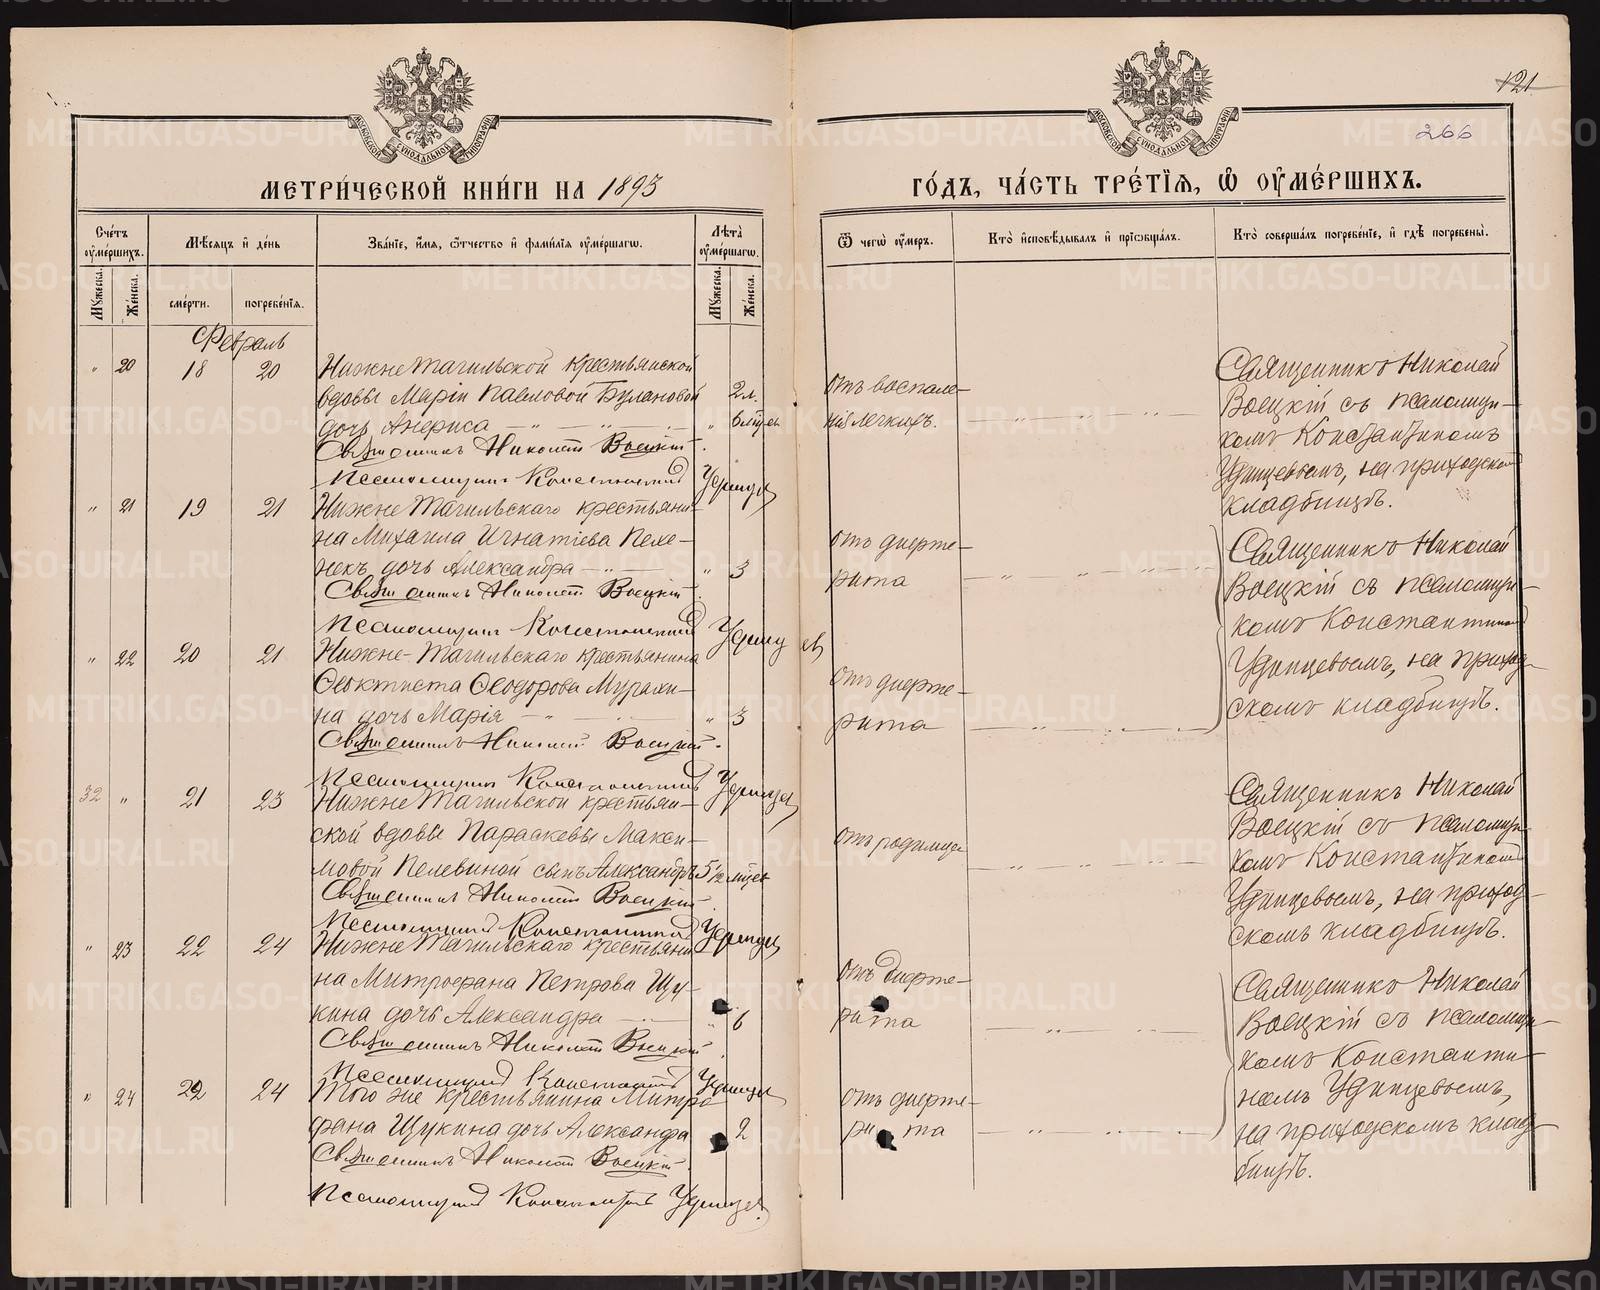 121
266
МЕТРИ́ЧЕСКОЙ КНИ́ГИ НА 1893
ГО́ДЪ, ЧА́СТЬ ТРЕ́ТІѦ, Ѡ҆ ОУ҆МЕ́РШИХЪ.
Сче́тъ оу҆ме́ршихъ.
Мѣ́сяцъ и҆ де́нь
Зва́ніе, и҆́мя, ѻ҆́тчество и҆ фами́лія оу҆ме́ршагѡ.
Лѣ́та оу҆ме́ршагѡ.
Ѿ чегѡ̀ оу҆́меръ.
Кто̀ и҆сповѣ́дывалъ и҆ прїѡбща́лъ.
Кто̀ соверша́лъ погребе́ніе, и҆ гдѣ̀ погребены̀.
Мꙋ́жеска.
Же́нска.
сме́рти.
погребе́нія.
Мꙋ́жеска.
Же́нска.
Февраль
" 20 18 20 Нижне Тагильской крестьянской
вдовы Маріи Павловой Булановой 2 л.
дочь Анфиса " 6 мѣс.
Священникъ Николай Воецкій.
Псаломщикъ Константинъ Удинцевъ
отъ воспале-
нія легкихъ.
Священникъ Николай
Воецкій съ псаломщи-
комъ Константиномъ
Удинцевымъ, на приходском
кладбищѣ.
" 21 19 21 Нижне Тагильскаго крестьяни-
на Михаила Игнатіева Пеле-
дочь Александра " 3
Священникъ Николай Воецкій.
Псаломщикъ Константинъ Удинцевъ
отъ дифте-
рита
Священникъ Николай
Воецкій съ псаломщи-
комъ Константином
Удинцевымъ, на приход-
скомъ кладбищѣ.
" 22 20 21 Нижне-Тагильскаго крестьянина
Ѳеоктиста Ѳеодорова Мурахи-
на дочь Марія " 3
Священникъ Николай Воецкій.
Псаломщикъ Константинъ Удинцевъ
отъ дифте-
рита
32 " 21 23 Нижне Тагильской крестьян-
ской вдовы Параскевы Макси-
мовой Пелевиной сынъ Александръ 5 1/2 мѣсяц
Священникъ Николай Воецкій.
Псаломщикъ Константинъ Удинцевъ
отъ родимца
Священникъ Николай
Воецкій съ псаломщи-
комъ Константиномъ
Удинцевымъ, на приход-
скомъ кладбищѣ.
" 23 22 24 Нижне Тагильскаго крестьяни-
на Митрофана Петрова Щу-
кина дочь Александра " 6
Священникъ Николай Воецкій.
Псаломщикъ Константинъ Удинцевъ
отъ дифте-
рита
Священникъ Николай
Воецкій съ псаломщи-
комъ Константи-
номъ Удинцевымъ,
на приходскомъ клад-
бищѣ.
" 24 22 24 Того же крестьянина Митро
фана Щукина дочь Александра 2
Священникъ Николай Воецкій.
Псаломщикъ Константинъ Удинцевъ.
отъ дифте-
рита
METRIKI.GASO-URAL.RU